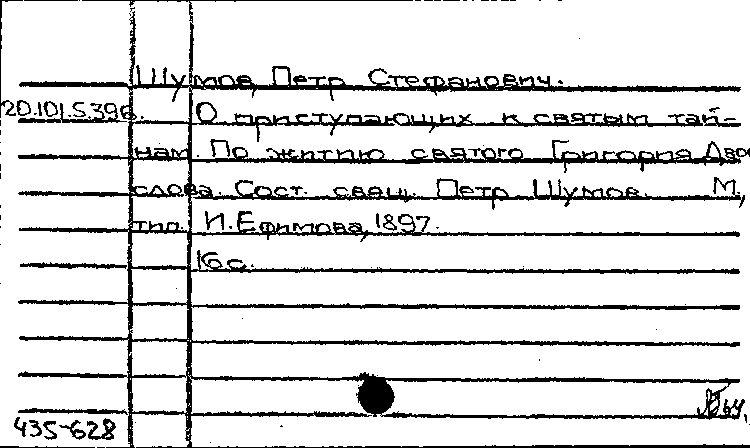 Шумов, Петр Стефанович.
20.101.5.396. О приступающих к святым тай-
нам. По житию святого Григория Дво-
слова. Сост. свящ. Петр Шумов. М.,
тип. И. Ефимова, 1897.
16 с.
435-628